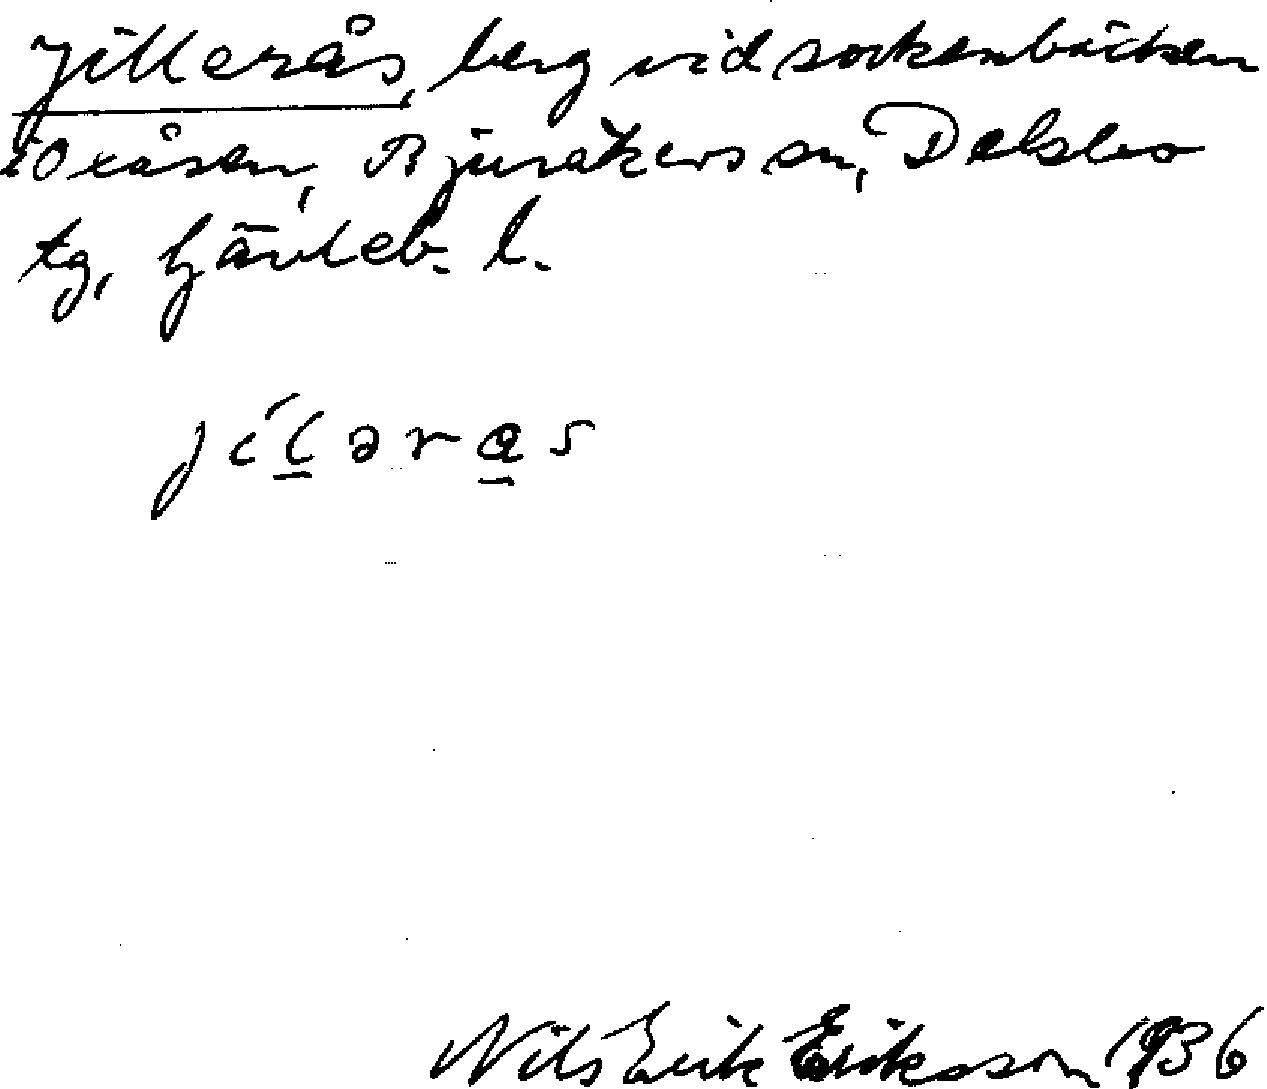 Jillerås, berg vid sockenbäcken
Oxåsen, Bjuråkers sn, Delsbo
tg, Gävleb. l.
jílləras
Nils Erik Eriksson 1936